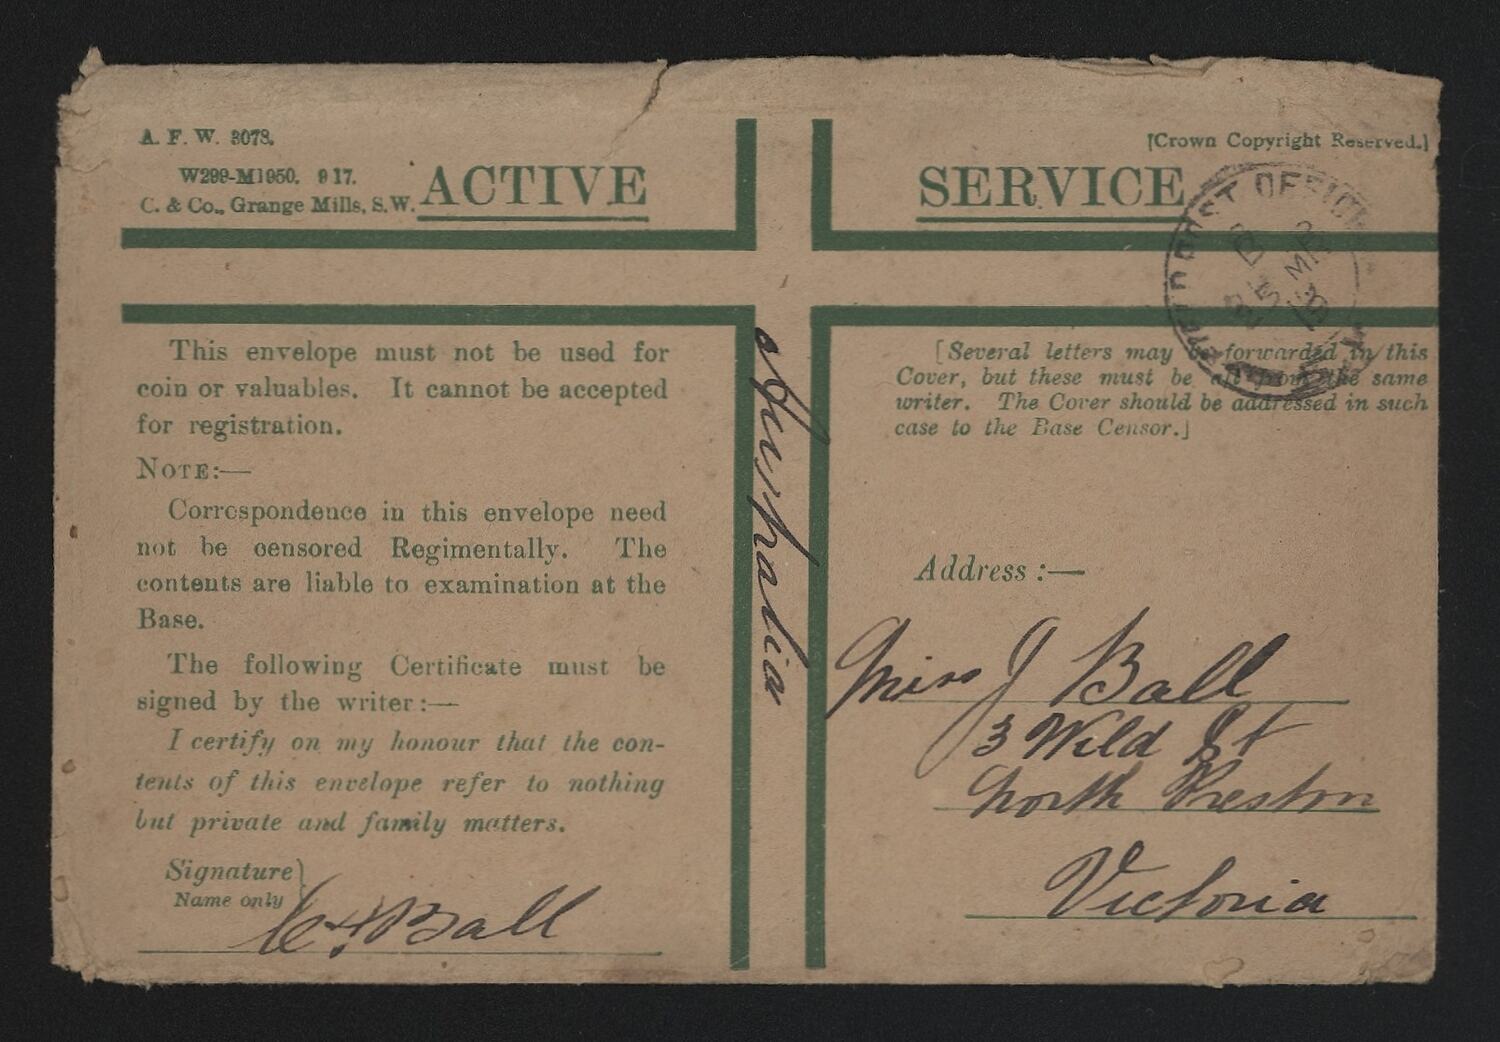 A. F. W. 3078.
W299-M1950. 9 17.
C. & Co., Grange Mills, S.W.
ACTIVE SERVICE
[Crown Copyright Reserved.]
FIELD POST OFFICE
5 MR
18
This envelope must not be used for
coin or valuables. It cannot be accepted
for registration.
NOTE:—
Correspondence in this envelope need
not be censored Regimentally. The
contents are liable to examination at the
Base.
The following Certificate must be
signed by the writer:—
I certify on my honour that the con-
tents of this envelope refer to nothing
but private and family matters.
Signature
Name only
Ball
Australia
[Several letters may be forwarded in this
Cover, but these must be all from the same
writer. The Cover should be addressed in such
case to the Base Censor.]
Address :—
Miss J Ball
3 Wild St
North Preston
Victoria